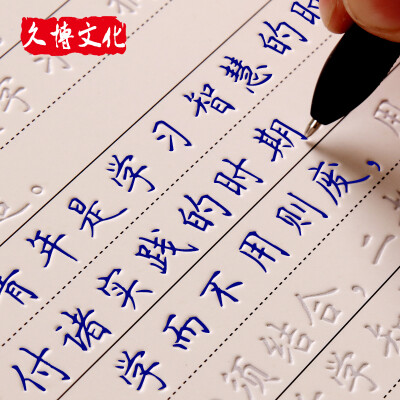 久博文化
青年是学习智慧的时
付诸实践的时期
学而不用则废，用
须结合，二
学和